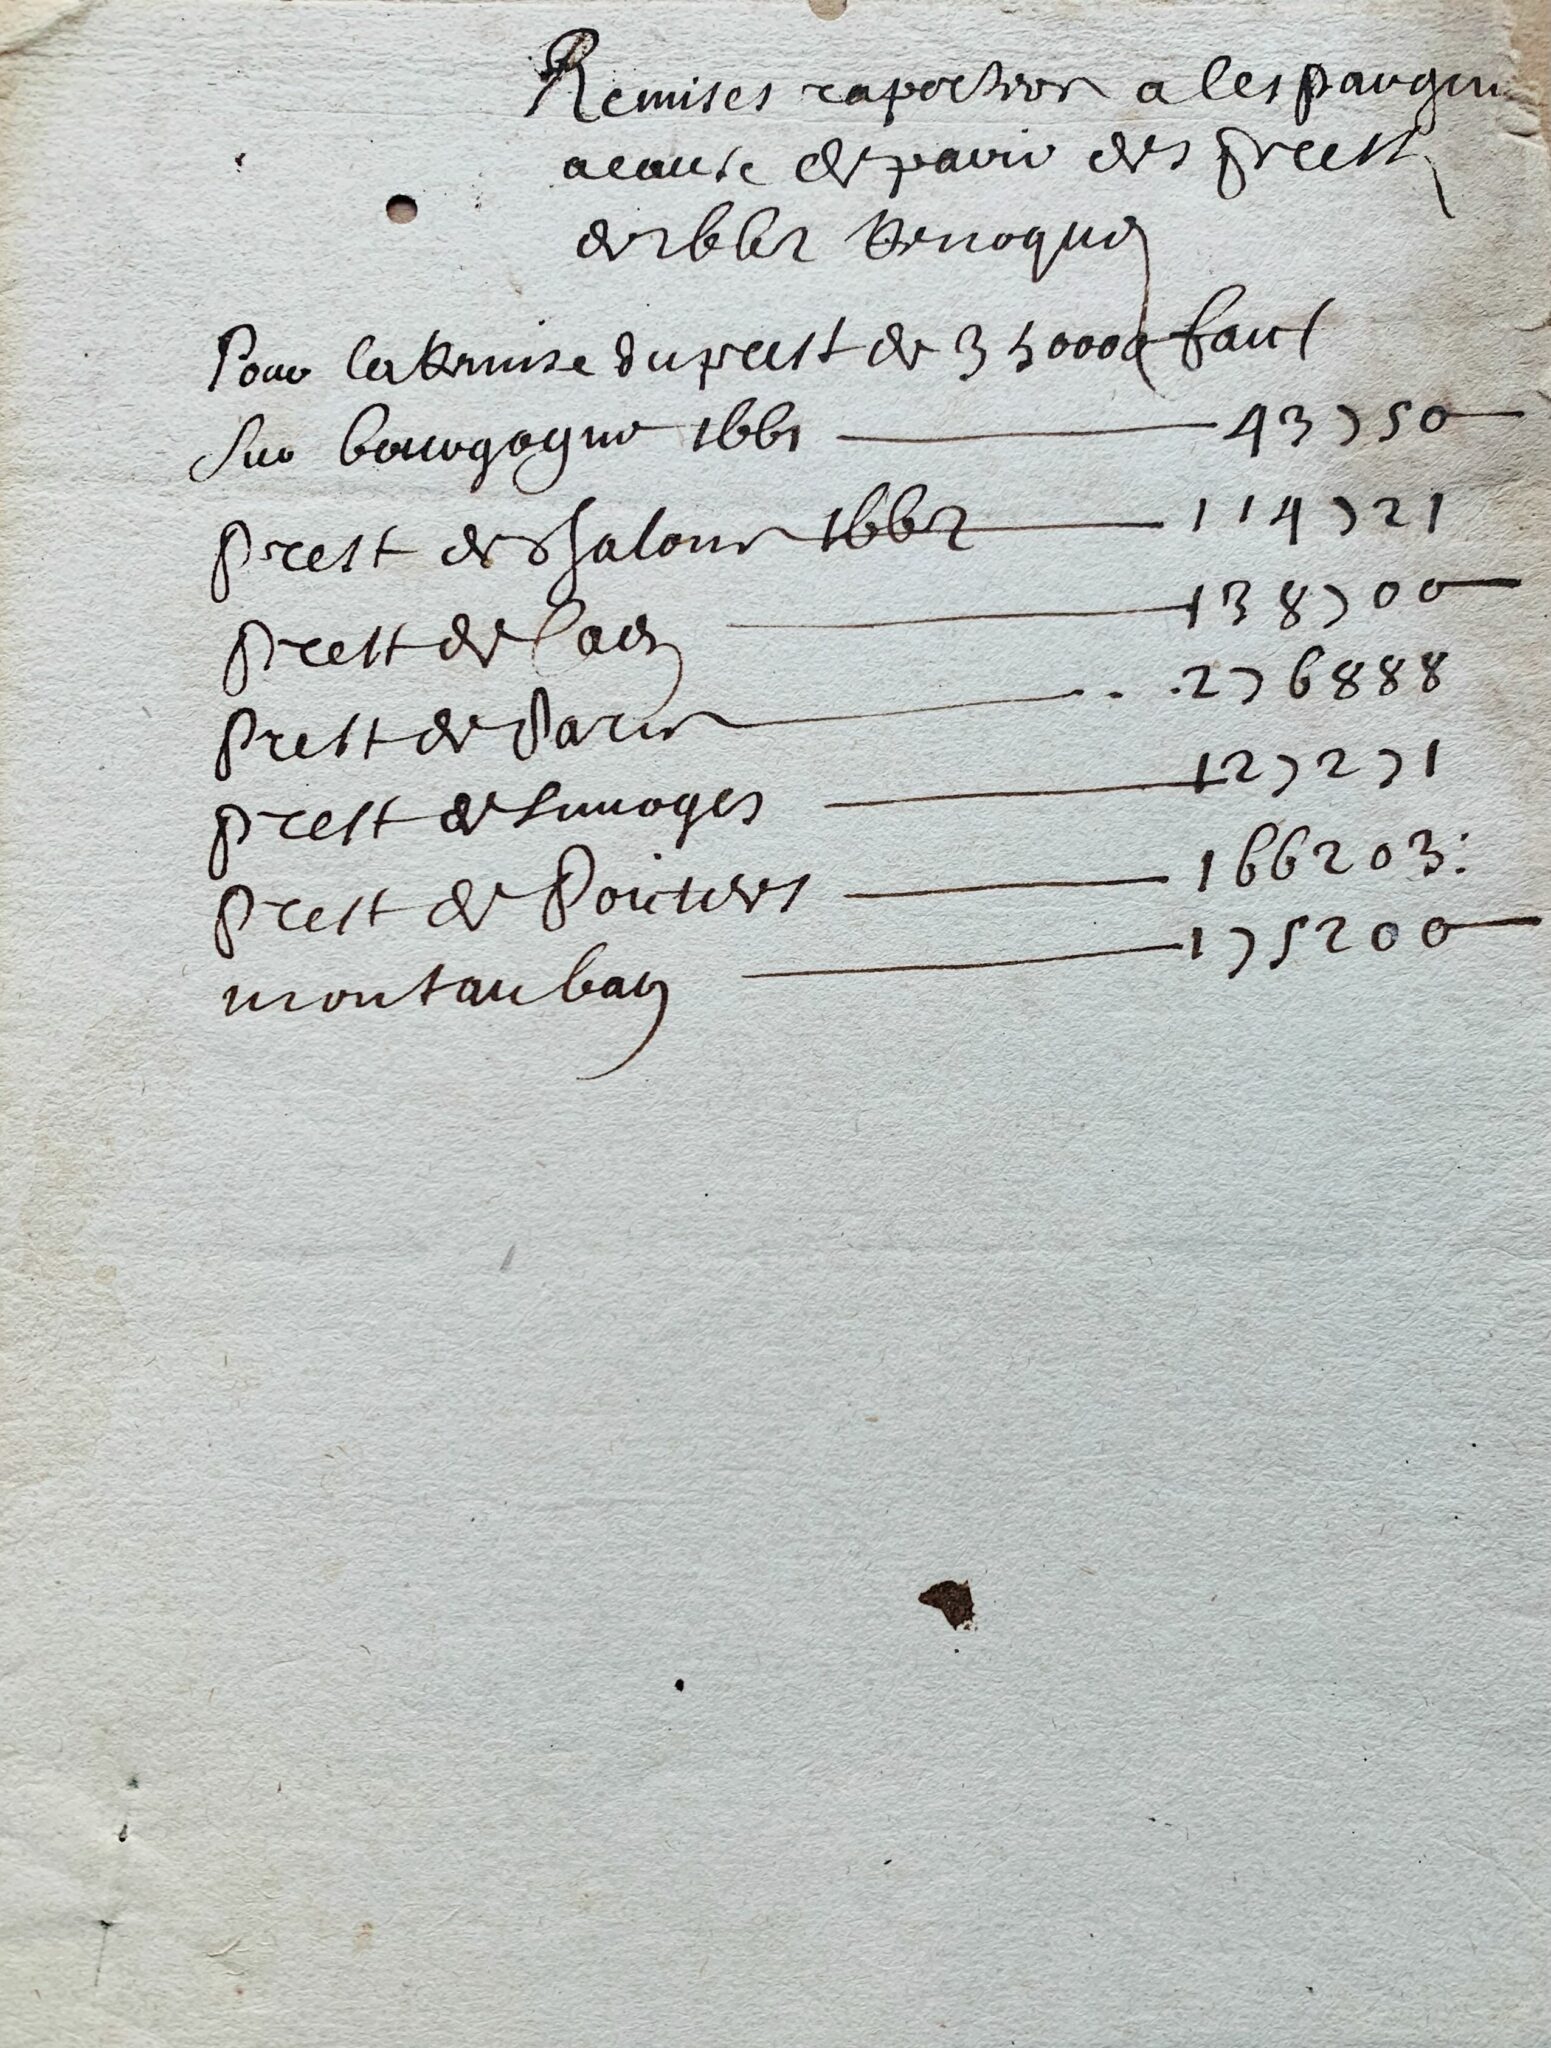 Remises raportees a lespargne
a cause de partie des prest
de 1662 Revoqués
Pour la Remise du prest de 350000 faict
sur bourgogne 1661 43750
prest de Chalons 1662 114721
prest de Caen 138700
prest de Paris 276888
prest de Limoges 127271
prest de Poictiers 166203
montauban 175200